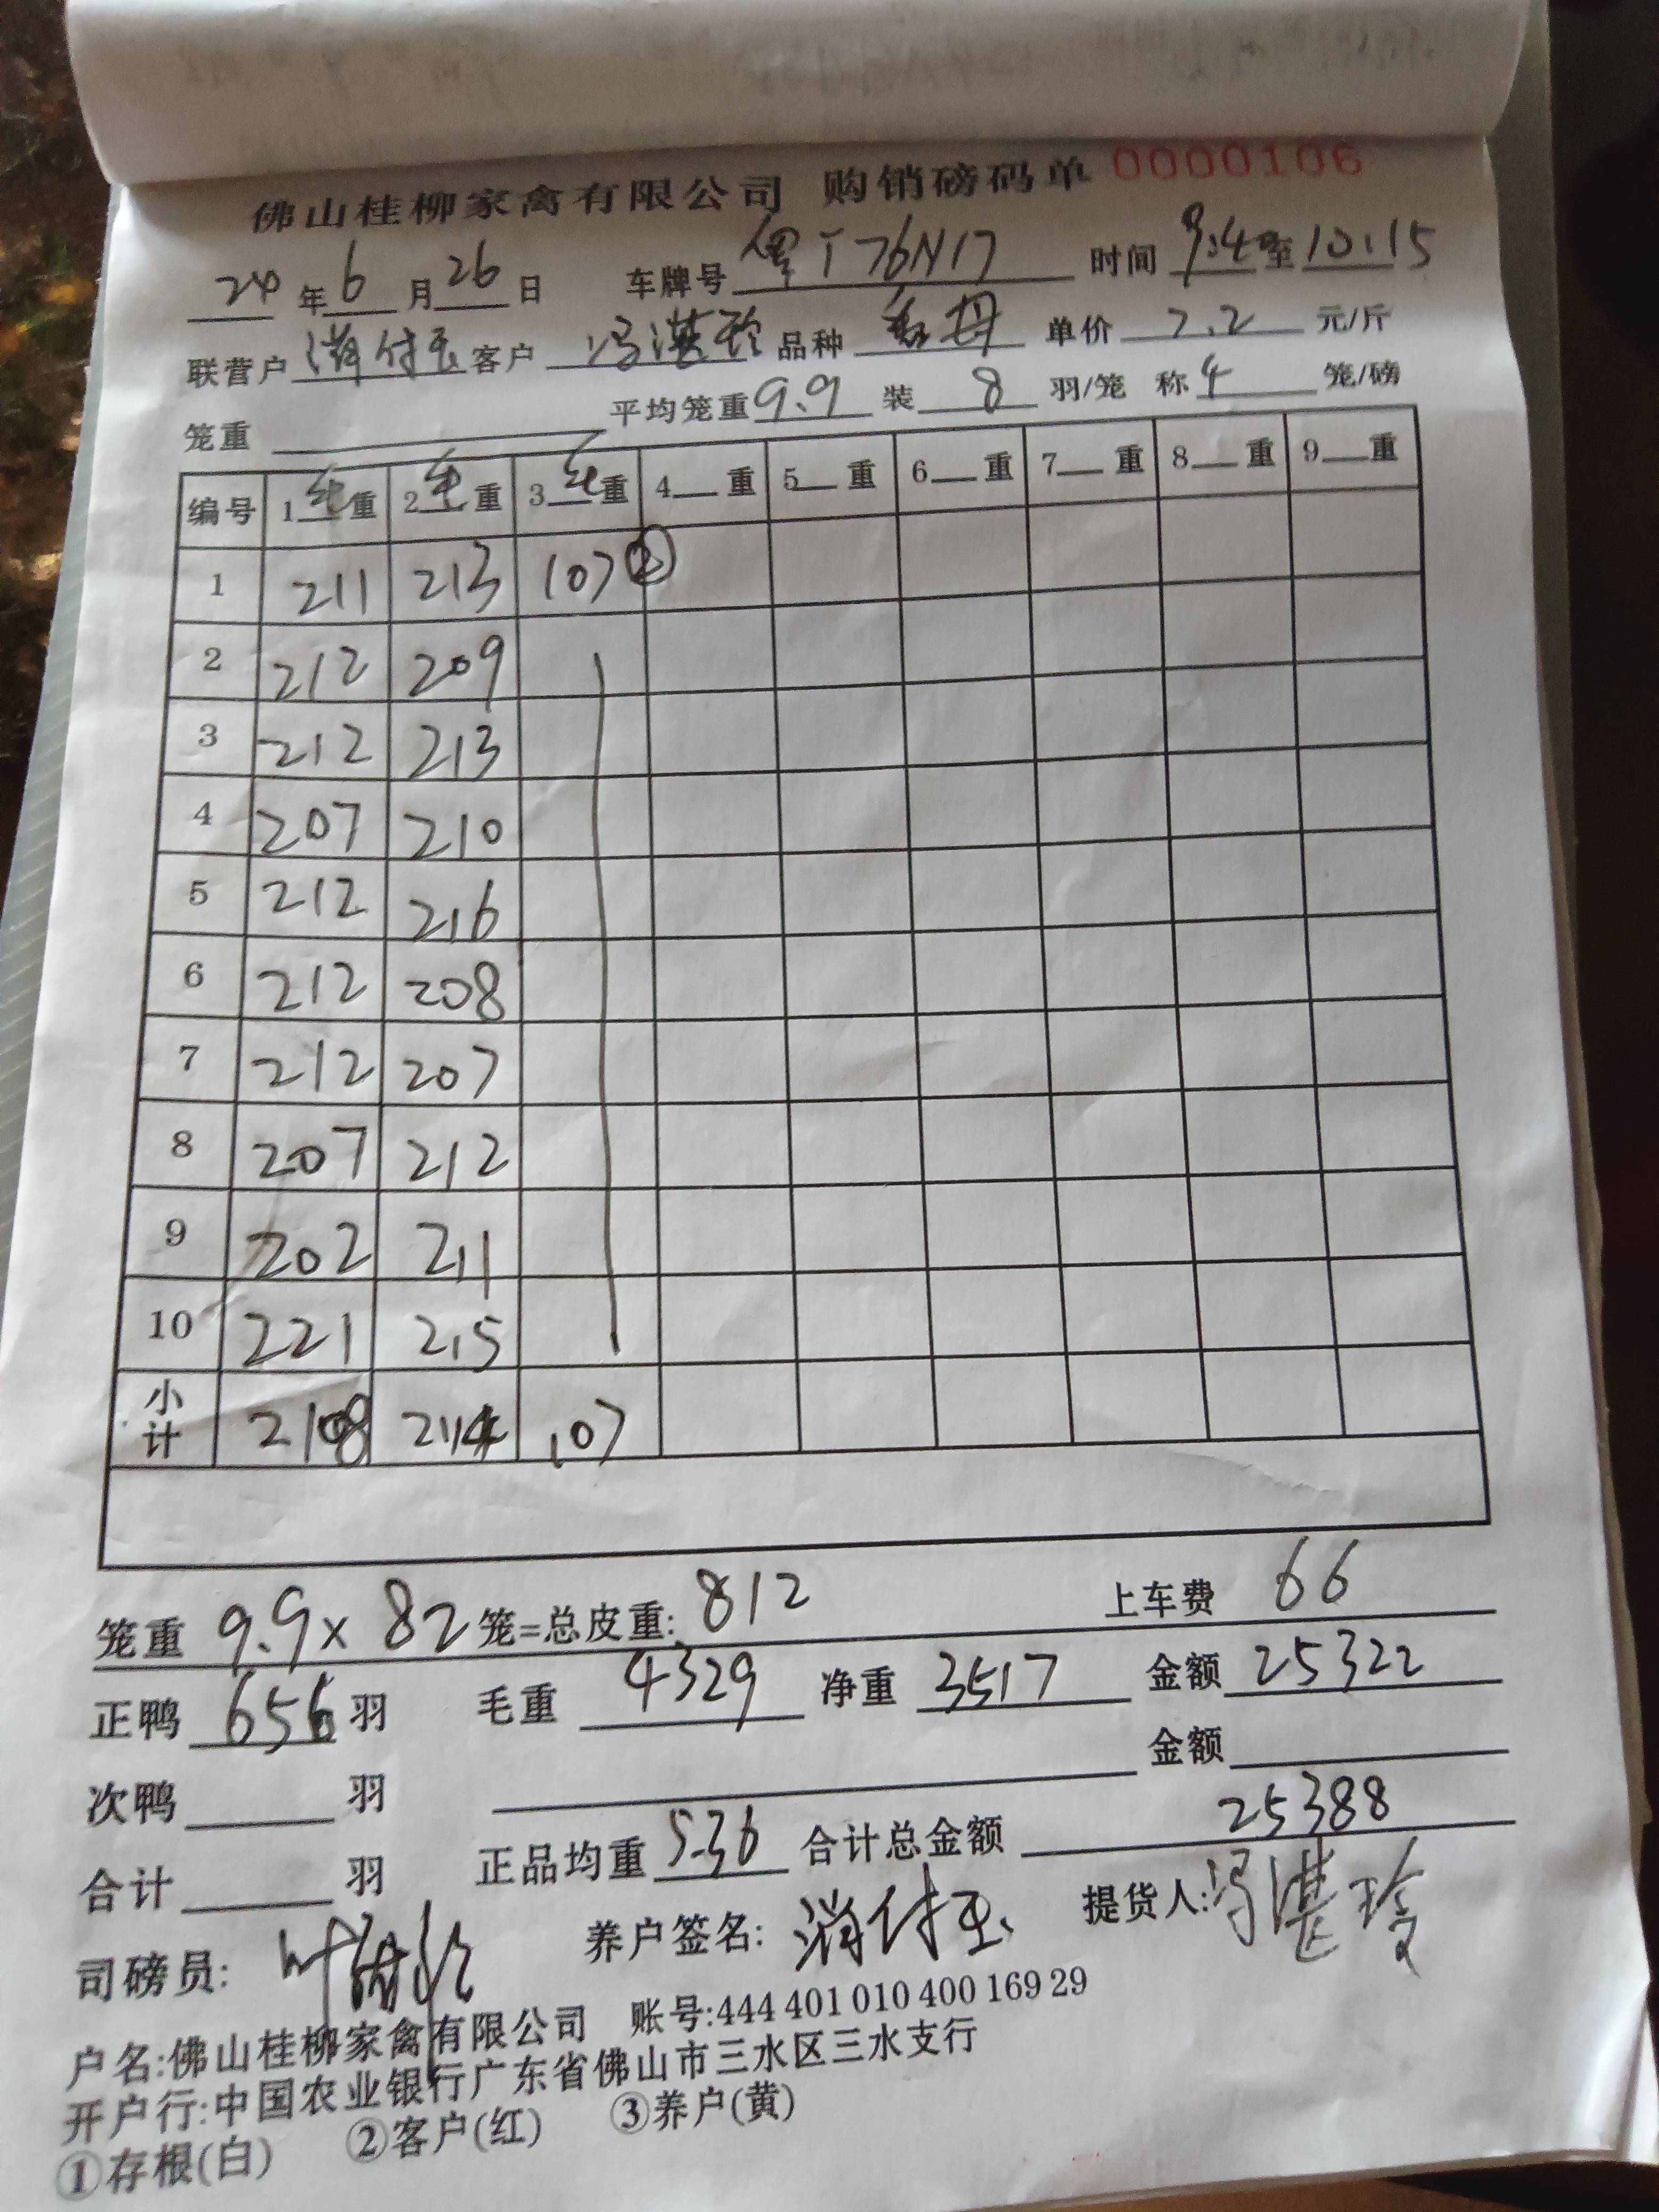 佛山桂柳家禽有限公司 购销磅码单 0000106
24 年 6 月 26 日 车牌号 粤T76N17 时间 9:4 至 10:15
联营户 客户 冯湛玲 品种 单价 7.2 元/斤
笼重 平均笼重 9.9 装 8 羽/笼 称 4 笼/磅
编号 1 毛 重 2 毛 重 3 毛 重 4 重 5 重 6 重 7 重 8 重 9 重
1 211 213 107 ②
2 212 209
3 212 213
4 207 210
5 212 216
6 212 208
7 212 207
8 207 212
9 202 211
10 221 215
小计 2108 2114 107
笼重 9.9 x 82 笼=总皮重: 812 上车费 66
正鸭 656 羽 毛重 4329 净重 3517 金额 25322
次鸭 羽 金额
合计 羽 正品均重 5.36 合计总金额 25388
司磅员: 养户签名: 提货人: 冯湛玲
户名:佛山桂柳家禽有限公司 账号:444 401 010 400 169 29
开户行:中国农业银行广东省佛山市三水区三水支行
①存根(白) ②客户(红) ③养户(黄)